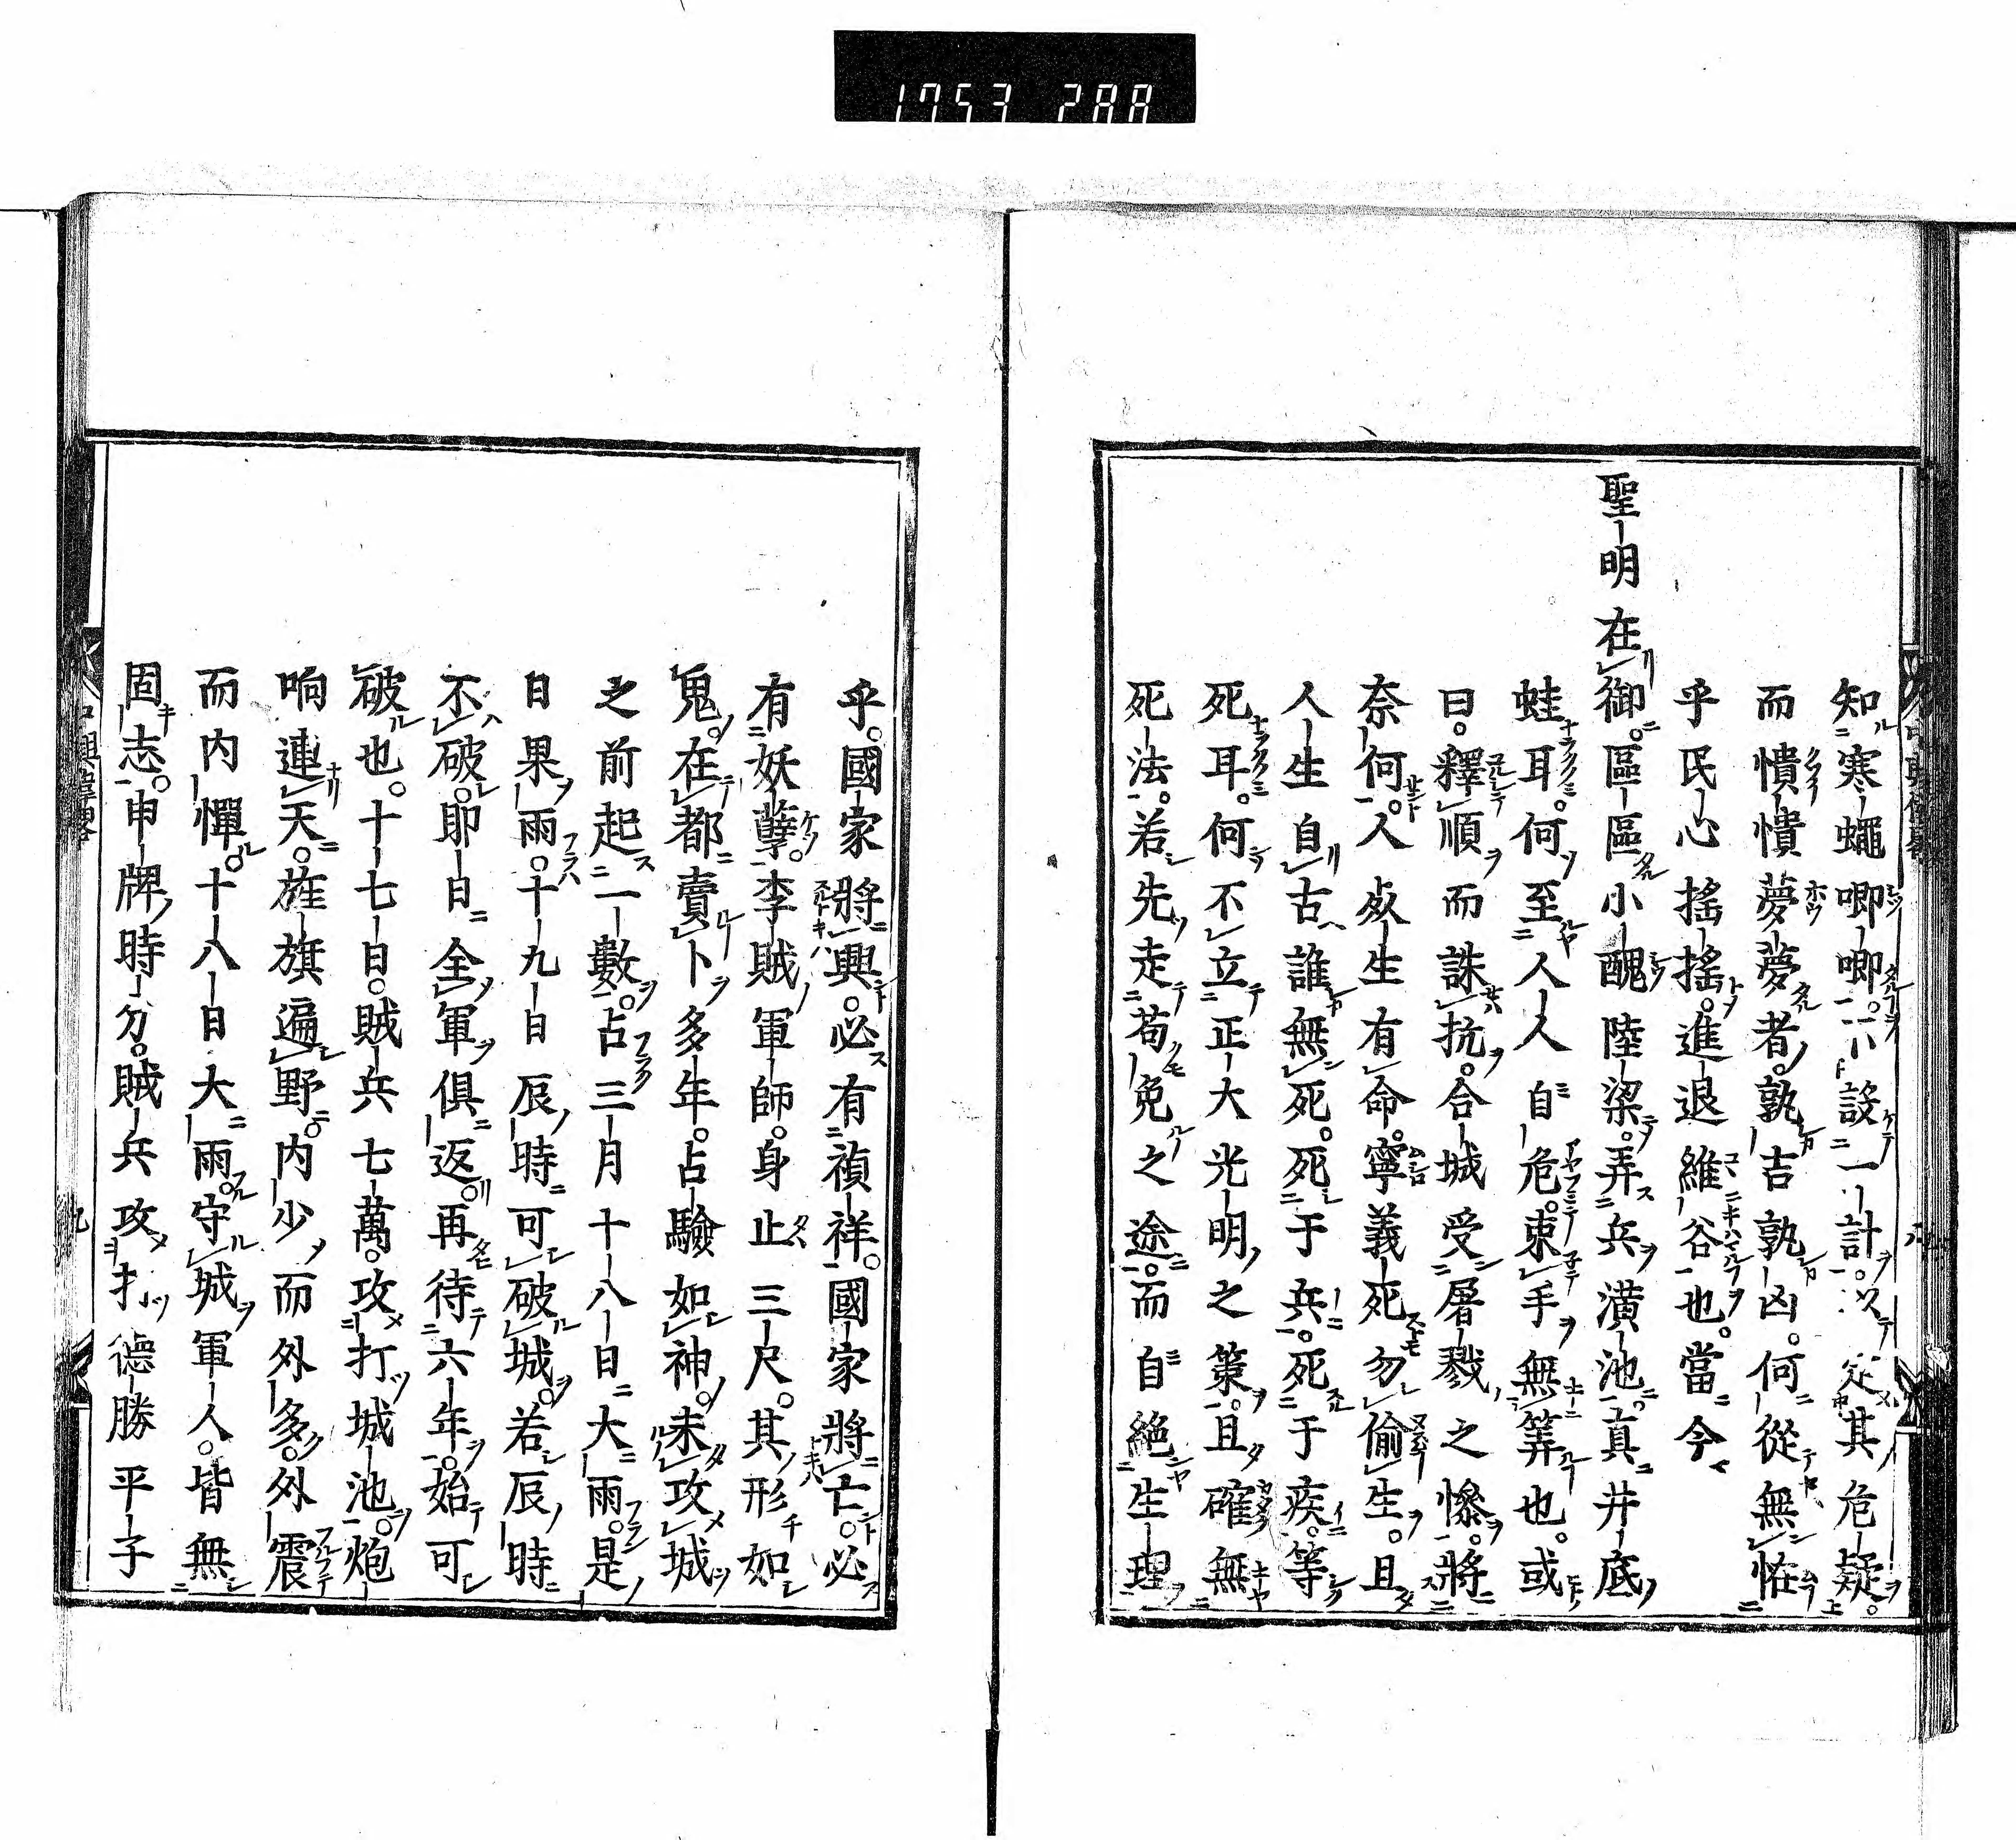 1753 288
知寒蠅唧唧。不設一計。以定其危疑。
而憒憒夢夢者。孰吉孰凶。何從無怪
乎民心搖搖。進退維谷也。當今
聖明在御。區區小醜陸梁。弄兵潢池。真井底
蛙耳。何至人人自危。束手無筭也。或
曰。釋順而誅抗。合城受屠戮之慘。將
奈何。人處生有命。寧義死勿偷生。且
人生自古誰無死。死于兵。死于疾。等
死耳。何不立正大光明之策。且確無
死法。若先走苟免之途。而自絕生理
乎。國家將興。必有禎祥。國家將亡。必
有妖孽。李賊軍師。身止三尺。其形如
鬼。在都賣卜多年。占驗如神。未攻城
之前起一數。占三月十八日大雨。是
日果雨。十九日辰時可破城。若辰時
不破。即日全軍俱返。再待六年。始可
破也。十七日。賊兵七萬。攻打城池。炮
响連天。旌旗遍野。内少而外多。外震
而内憚。十八日大雨。守城軍人。皆無
固志。申牌時分。賊兵攻打德勝平子
八
九